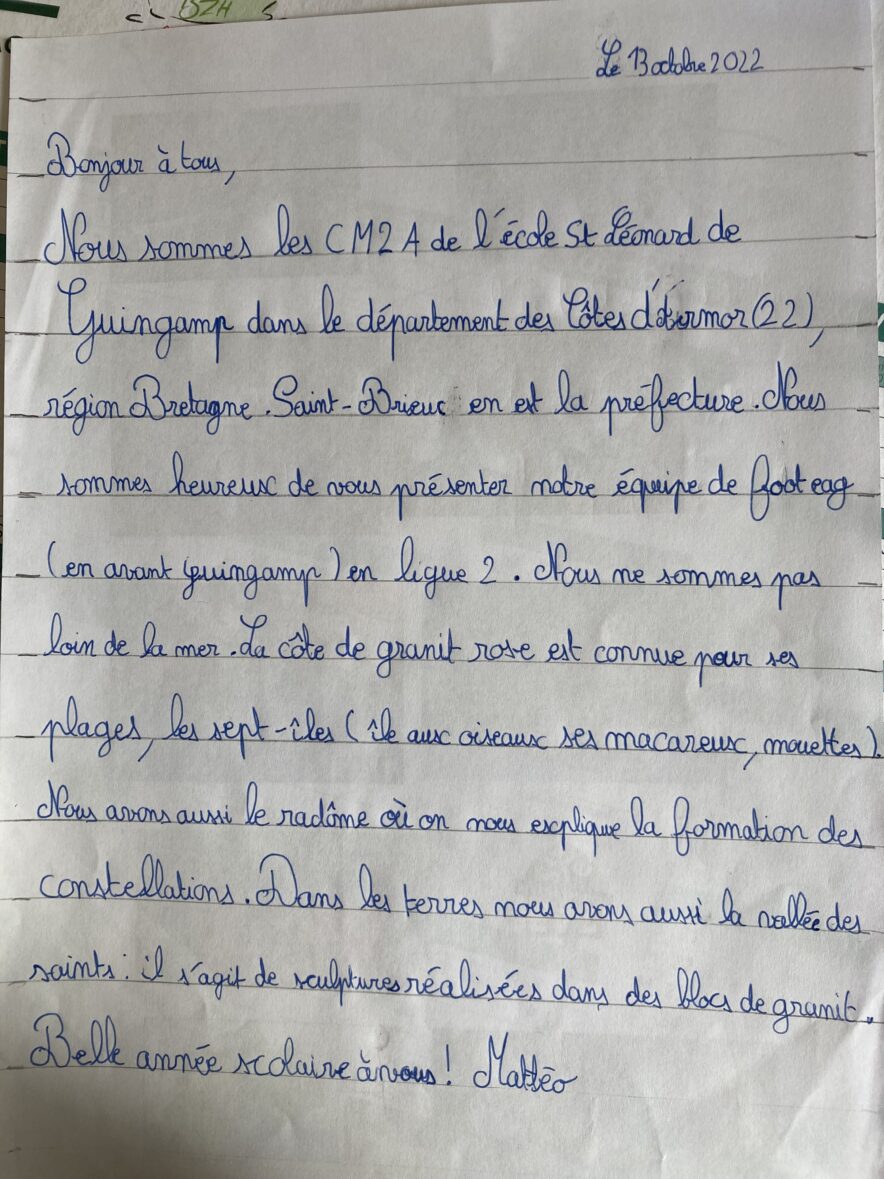 Le 13 octobre 2022
Bonjour à tous,
Nous sommes les CM2 A de l'école St Léonard de
Guingamp dans le département des Côtes d'Armor (22),
région Bretagne. Saint-Brieuc en est la préfecture. Nous
sommes heureux de vous présenter notre équipe de foot eag
(en avant guingamp) en ligue 2. Nous ne sommes pas
loin de la mer. La côte de granit rose est connue pour ses
plages, les sept-îles (île aux oiseaux ses macareux, mouettes).
Nous avons aussi le radôme où on nous explique la formation des
constellations. Dans les terres nous avons aussi la vallée des
saints : il s'agit de sculptures réalisées dans des blocs de granit.
Belle année scolaire à vous ! Mattéo